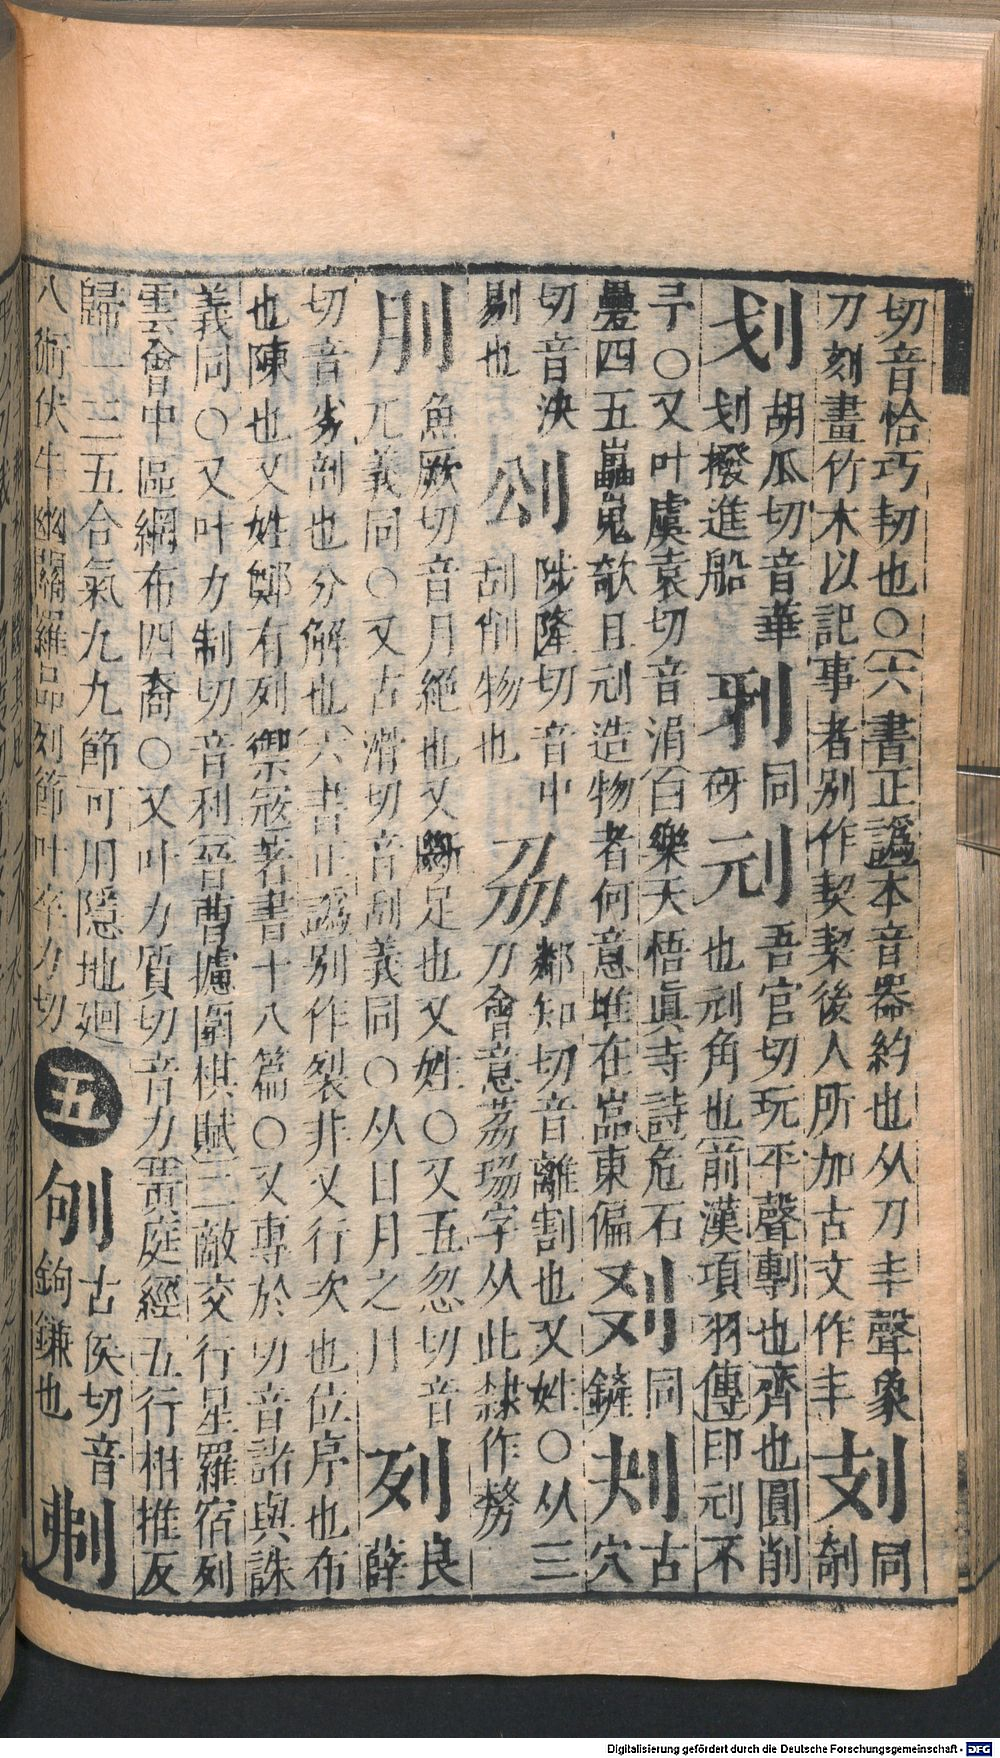 切音恰巧㓞也○六書正譌本音器約也从刀丰聲象
刀刻畫竹木以記事者别作契栔後人所加古文作丰
刻同
剞
划胡瓜切音華
划撥進船
同
砑
刓吾官切玩平聲剸也齊也圓削
也刓角也前漢項羽傳印刓不
予○又叶虞袁切音涓白樂天悟眞寺詩危石
疊四五嵬欹且刓造物者何意堆在嵓東偏
同
鏟
古穴
切音決
剔也
陟隆切音中
刮削物也
刕鄰知切音離割也又姓○从三
刀會意荔珕字从此隷作
刖魚厥切音月絶也又斷足也又姓○又五忽切音
兀義同○又古滑切音刮義同○从日月之月
列良薛
切音劣剖也分解也六書正譌别作裂非又行次也位序也布
也陳也又姓鄭有列禦寇著書十八篇○又專於切音諸與誅
義同○又叶力制切音利晉曹攄圍棋賦二敵交行星羅宿列
雲會中區網布四裔○又叶力質切音力黃庭經五行相推反
歸一三五合氣九九節可用隱地廻
八術伏牛幽闕羅品列節叶卒力切
五
刣古侯切音
鉤鎌也